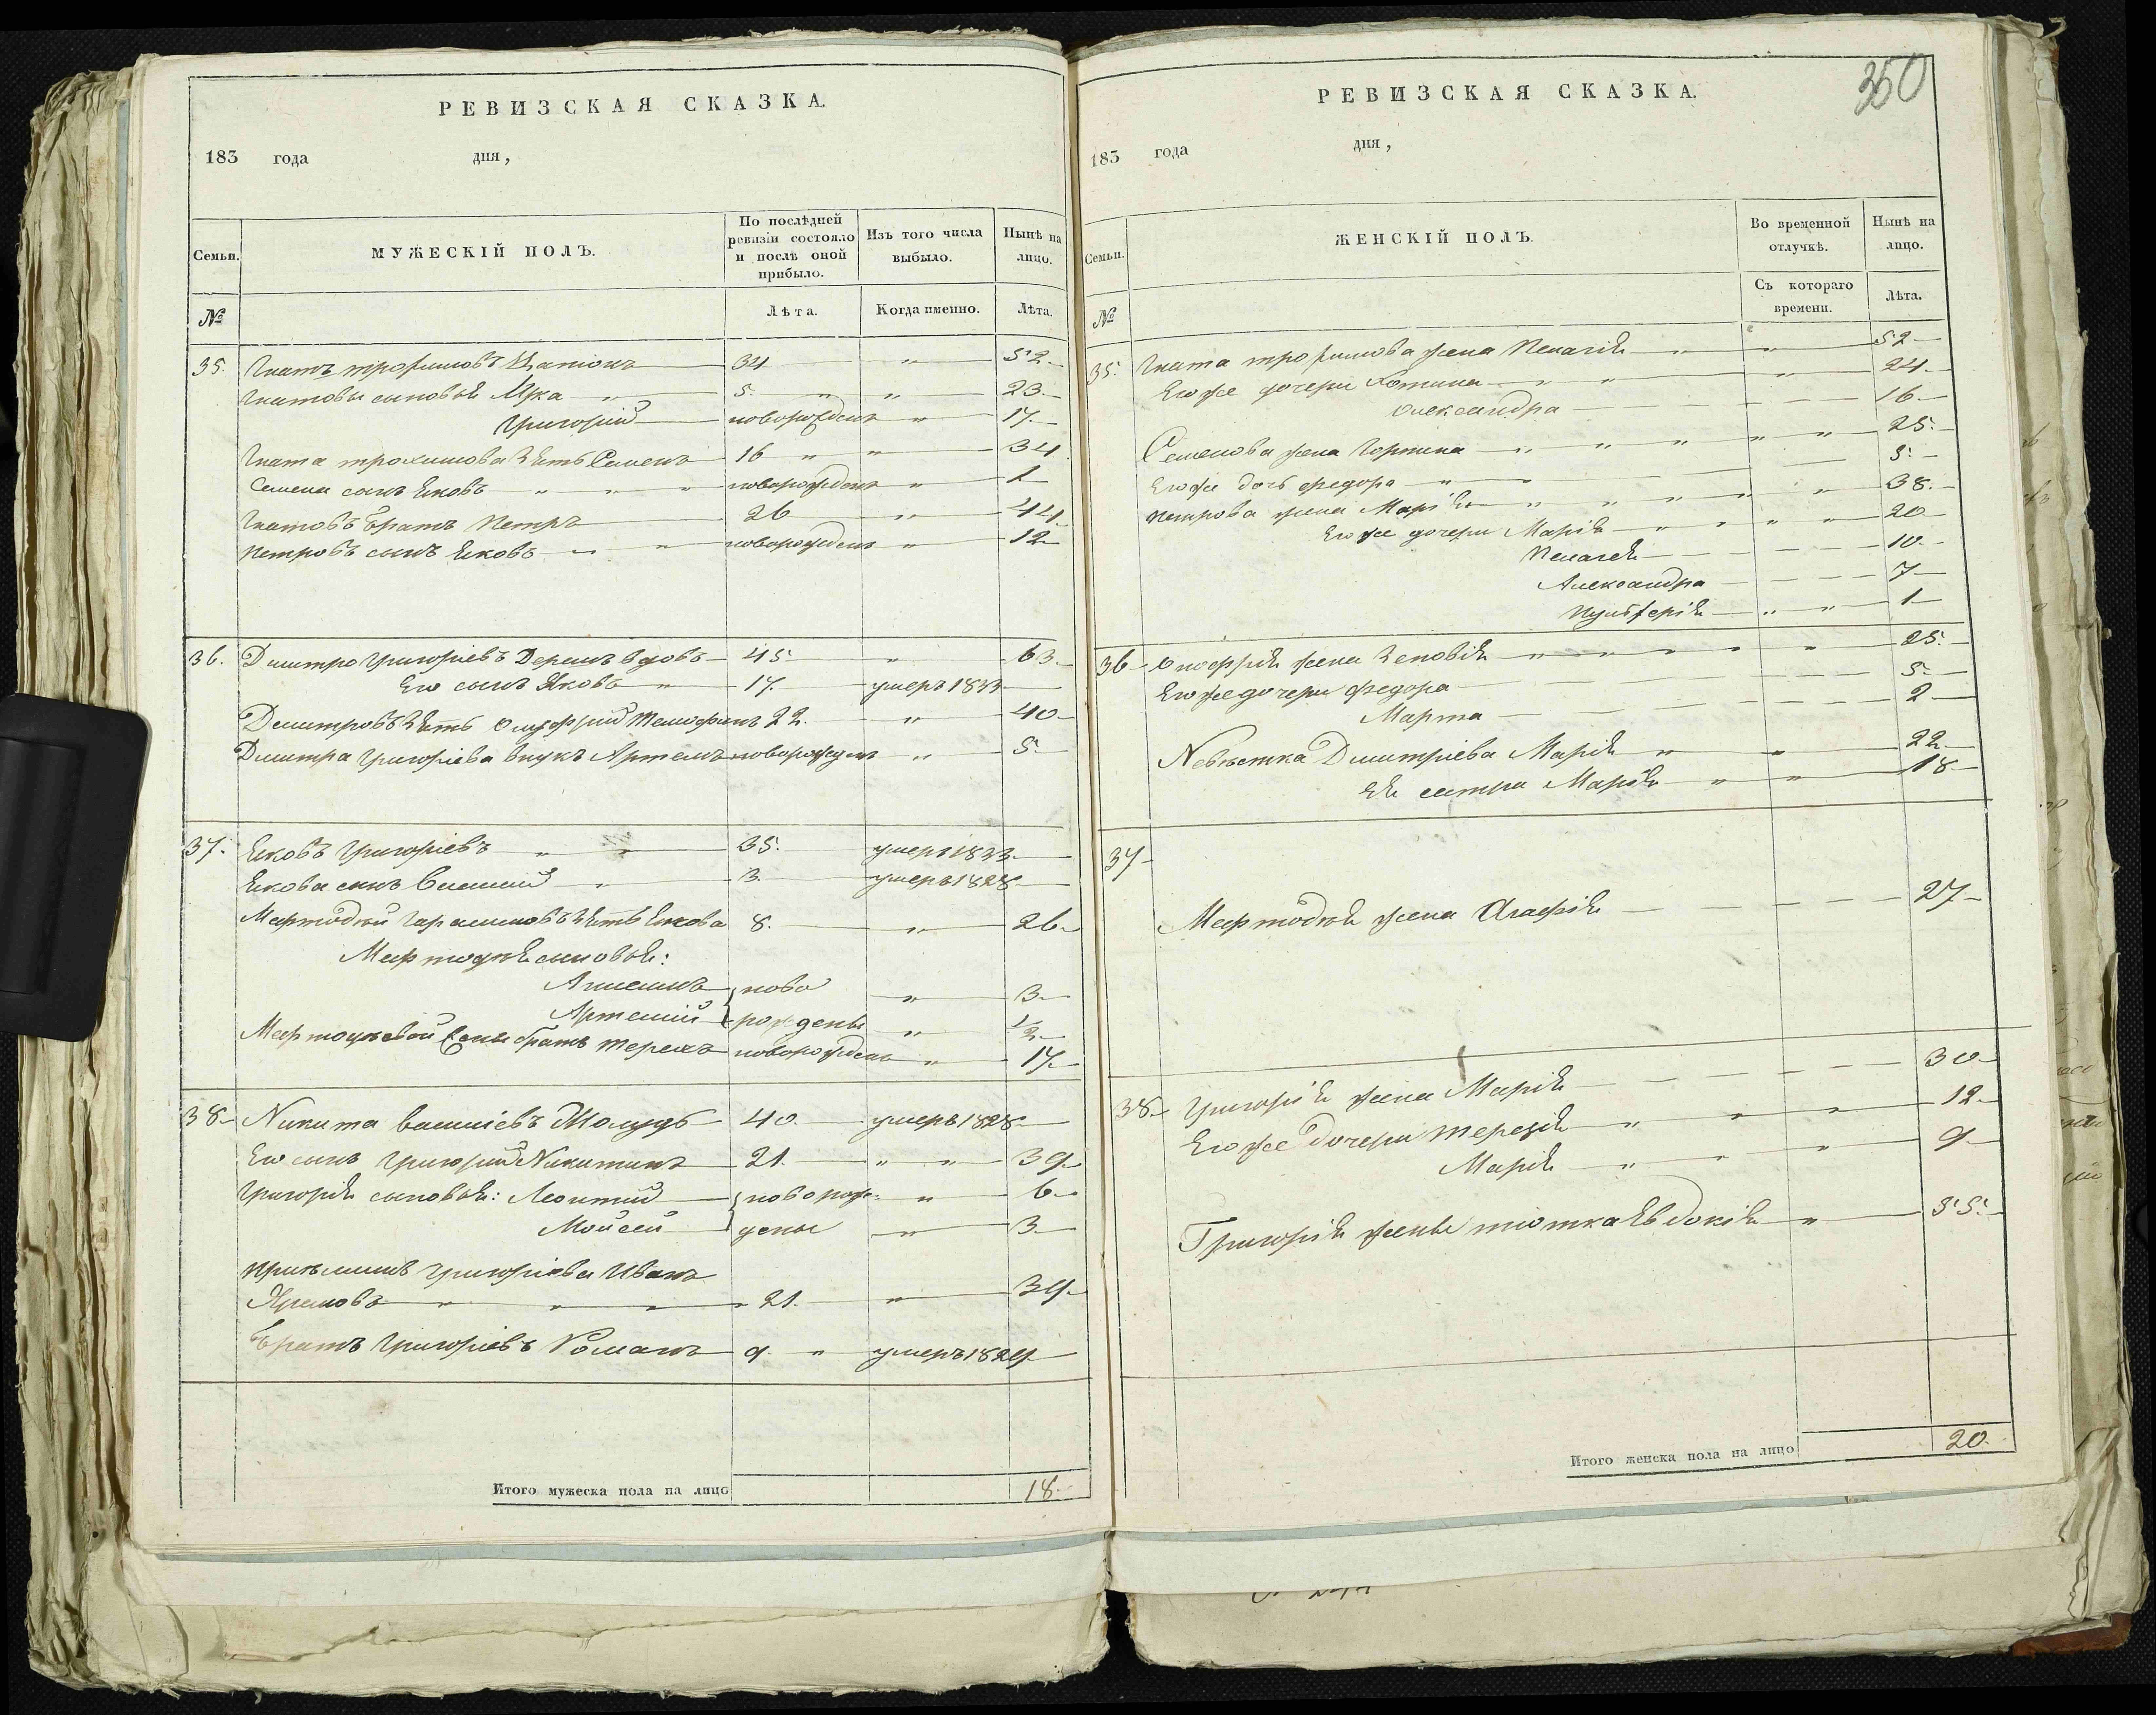 РЕВИЗСКАЯ СКАЗКА.
183 года дня,
Семьи. МУЖЕСКІЙ ПОЛЪ. По послѣдней ревизіи состояло и послѣ оной прибыло. Изъ того числа выбыло. Нынѣ на лицо.
№ Лѣта. Когда именно. Лѣта.
35. Игнатъ трофимовъ 34 " 52
Игнатовы сыновья 5. " " 23
Григорій новорожденъ " 17
Игната трохимова зять Семенъ 16 " " 34
Семена сынъ Яковъ " " " новорожденъ " 1
Игнатовъ братъ Петръ 26 " 44
Петровъ сынъ Яковъ " " новорожденъ " 12
36. Дмитро Григоріевъ вдовъ 45 " 63
Его сынъ Яковъ " 17. умеръ 1833
Демитровъ зять Онуфрій 22. " 40
Дмитра Григоріева внукъ Артемъ новорожден " 5
37. Яковъ Григоріевъ " " 35. умеръ 1833
Якова сынъ Василий " 3. умеръ 1828
зять Якова 8. " 26
сыновья:
ново " 3
Артемий рождены " 1/2
братъ Терехъ новорожденъ " 17
38 Никита василіевъ 40. умеръ 1828
Его сынъ Григорий Никитинъ 21. " " 39
Григорія сыновья: Леонтий новорож= " 6
Мойсей дены " 3
Григоріева Иванъ
" " " 21. " 39
Братъ Григоріевъ Романъ 9. " умеръ 1829
Итого мужеска пола на лицо 18.
350
РЕВИЗСКАЯ СКАЗКА.
183 года дня,
Семьи. ЖЕНСКІЙ ПОЛЪ. Во временной отлучкѣ. Нынѣ на лицо.
№ Съ котораго времени. Лѣта.
35. Игната трофимова жена Пелагія " " 52
Его же дочери " " " 24
Олександра 16
Семенова жена Горпина " " " " " 25
Его же дочь федора " " 5
Петрова жена Марія " " " " " 38
Его же дочери Марія " " " " 20
Пелагея 10
Александра 7
Пульферія " " 1
36 Онофрія жена Зеновія " " " " " 25
Его же дочери федора 5
Марта 2
Невѣстка Дмитріева Марія " " 22
Ея сестра Марія " " 18
37
жена Агафія 27
38 Григорія жена Марія 30
Его же дочери Терезія " " " 12
Марія " " " 9
Григорія жены тіотка Евдокія " 55
Итого женска пола на лицо 20.